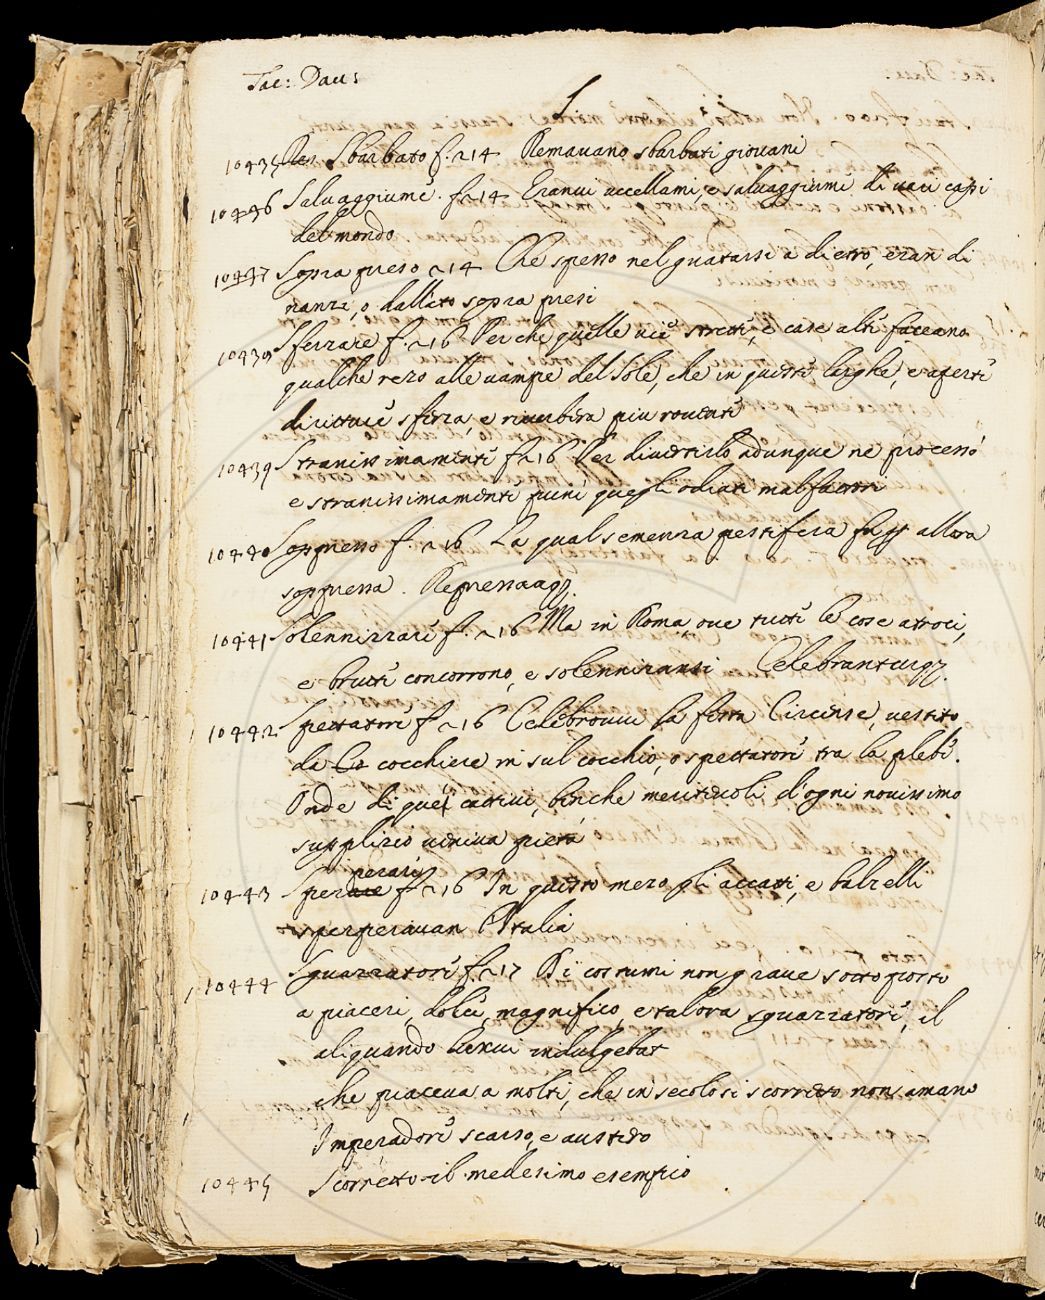 Tac: Dav:
S
10435 Sbarbato f. 214 Remavano sbarbati giovani
10436 Salvaggiume. f. 214 Eranvi uccellami, e salvaggiumi di varj capi
del mondo
10437 Sopra preso 214 Che spesso nel guatarsi a dietro, eran di
nanzi, o dallato sopra presi
10439 Sferzare f. 216 Perchè quelle vie strette, e case alte faceano
qualche rezo alle vampe del Sole, che in queste larghe, e aperte
diritture sferza, e riverbera più rovente
10439 Stranissimamente f. 216 Per divertirlo adunque ne processò
e stranissimamente punì quegli odiati malfattori
10440 Soppresso f. 216 La qual semenza pestifera fu allora
soppressa. Repressaq3.
10441 Solennizzare f. 216 Ma in Roma, ove tutte le cose atroci,
e brutte concorrono, e solennizansi Celebranturq3.
10442 Spettatore f. 216 Celebrovvi la festa Circense, vestito
da cocchiere in sul cocchio, o spettatore tra la plebe.
Onde di quei cattivi, benche meritevoli d'ogni novissimo
supplizio veniva pietà
10443 Sperperare f. 216 In questo mezo gli accatti, e balzelli
sperperavan l'Italia
10444 Sguazzatore f. 217 Di costumi non grave sottoposto
a piaceri, dolce, magnifico, e talora sguazzatore, il
aliquando luxui indulgebat
che piaceva a molti, che in secolo si scorretto non amano
Imperadore scarso, e austero
10445 Scorretto il medesimo esempio